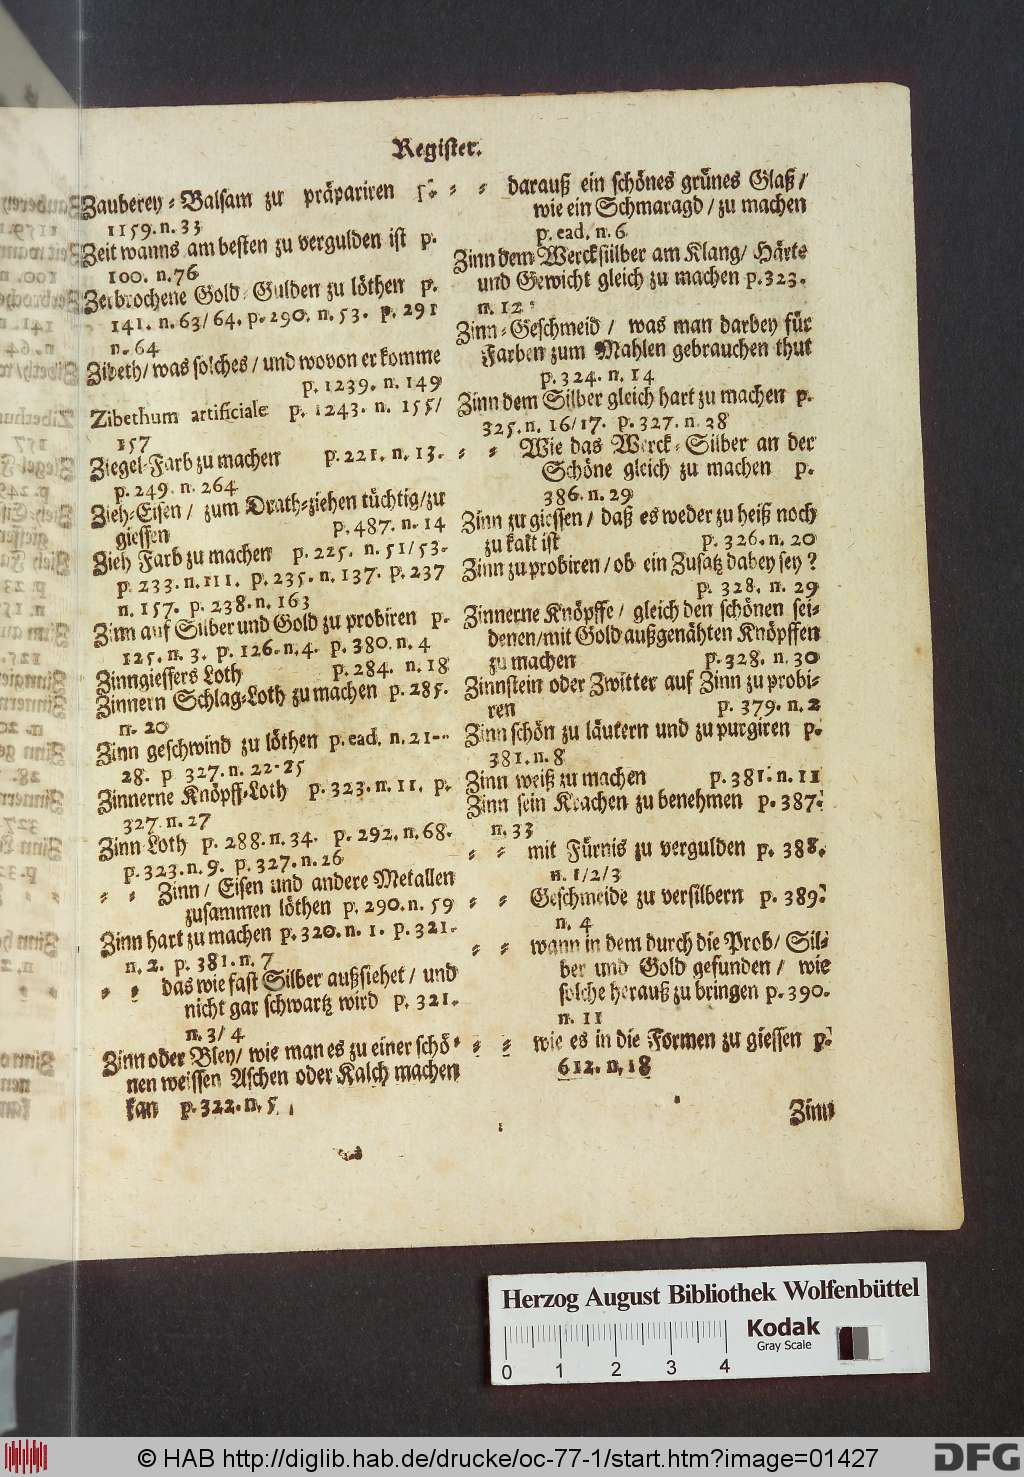 Register.
Zauberey-Balsam zu präpariren p.
1159. n. 33
Zeit wanns am besten zu vergulden ist p.
100. n. 76
Zerbrochene Gold-Gulden zu löthen p.
141. n. 63/64. p. 290. n. 53. p. 291
n. 64
Zibeth/ was solches/ und wovon er komme
p. 1239. n. 149
Zibethum artificiale p. 1243. n. 155/
157
Ziegel-Farb zu machen p. 221. n. 13.
p. 249. n. 264
Zieh-Eisen/ zum Drath-ziehen tüchtig/ zu
giessen p. 487. n. 14
Zieh Farb zu machen p. 225. n. 51/53.
p. 233. n. 111. p. 235. n. 137. p. 237
n. 157. p. 238. n. 163
Zinn auf Silber und Gold zu probiren p.
125. n. 3. p. 126. n. 4. p. 380. n. 4
Zinngiessers Loth p. 284. n. 18
Zinnern Schlag-Loth zu machen p. 285.
n. 20
Zinn geschwind zu löthen p. ead. n. 21--
28. p 327. n. 22-25
Zinnerne Knöpff-Loth p. 323. n. 11. p.
327. n. 27
Zinn Loth p. 288. n. 34. p. 292. n. 68.
p. 323. n. 9. p. 327. n. 26
- - Zinn/ Eisen und andere Metallen
zusammen löthen p. 290. n. 59
Zinn hart zu machen p. 320. n. 1. p. 321.
n. 2. p. 381. n. 7
- - das wie fast Silber außsiehet/ und
nicht gar schwartz wird p. 321.
n. 3/ 4
Zinn oder Bley/ wie man es zu einer schö-
nen weissen Aschen oder Kalch machen
kan p. 322. n. 5
- - darauß ein schönes grünes Glaß/
wie ein Schmaragd/ zu machen
p. ead. n. 6
Zinn dem Wercksilber am Klang/ Härte
und Gewicht gleich zu machen p. 323.
n. 12
Zinn-Geschmeid/ was man darbey für
Farben zum Mahlen gebrauchen thut
p. 324. n. 14
Zinn dem Silber gleich hart zu machen p.
325. n. 16/17. p. 327. n. 28
- - Wie das Werck-Silber an der
Schöne gleich zu machen p.
386. n. 29
Zinn zu giessen/ daß es weder zu heiß noch
zu kalt ist p. 326. n. 20
Zinn zu probiren/ ob ein Zusatz dabey sey?
p. 328. n. 29
Zinnerne Knöpffe/ gleich den schönen sei-
denen/ mit Gold außgenähten Knöpffen
zu machen p. 328. n. 30
Zinnstein oder Zwitter auf Zinn zu probi-
ren p. 379. n. 2
Zinn schön zu läutern und zu purgiren p.
381. n. 8
Zinn weiß zu machen p. 381. n. 11
Zinn sein Krachen zu benehmen p. 387.
n. 33
- - mit Fürnis zu vergulden p. 388.
n. 1/2/3
- - Geschmeide zu versilbern p. 389.
n. 4
- - wann in dem durch die Prob/ Sil-
ber und Gold gefunden/ wie
solche herauß zu bringen p. 390.
n. 11
- - wie es in die Formen zu giessen p.
612. n. 18
Zinn
Herzog August Bibliothek Wolfenbüttel
Kodak
Gray Scale
0 1 2 3 4
© HAB http://diglib.hab.de/drucke/oc-77-1/start.htm?image=01427
DFG